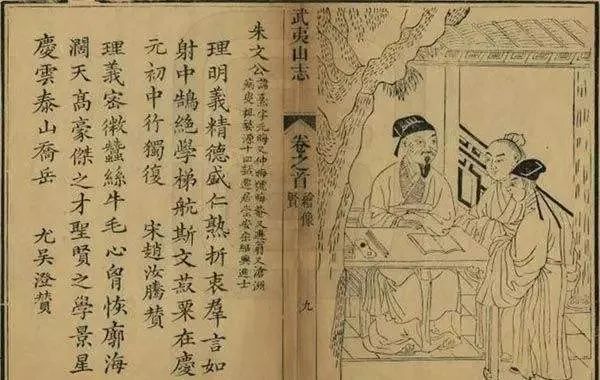 武夷山志
卷之首
繪像
賢
九
朱文公
諱熹字元晦又仲晦號晦菴又遯翁又滄洲
病叟祖婺源十四歲遷居崇安宋紹興進士
理明義精德盛仁熟折衷羣言如
射中鵠絶學梯航斯文菽粟在慶
元初中行獨復 宋趙汝騰贊
理義密微蠶絲牛毛心胷恢廓海
濶天高豪傑之才聖賢之學景星
慶雲泰山喬岳 元吳澄贊